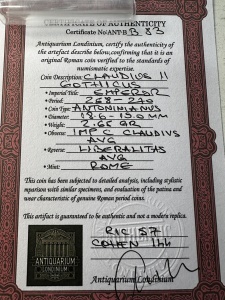 CERTIFICATE OF AUTHENTICITY
Certificate No/ANT-B B.83
Antiquarium Londinium, certify the authenticity of
the artefact describe below, confirming that it is an
original Roman coin verified to the standards of
numismatic expertise.
Coin Description: CLAUDIUS II
GOTHICUS
Imperial Title: EMPEROR
Period: 268-270
Coin Type: ANTONINIANUS
Diameter: mm
Weight: 2.65 GR
Obverse: IMP C CLAUDIUS
AVG
Reverse: LIBERALITAS
AVG
Mint: ROME
This coin has been subjected to detailed analysis, including stylistic
comparison with similar specimens, and evaluation of the patina and
wear characteristic of genuine Roman period coins.
This artifact is guaranteed to be authentic and not a modern replica.
RIC 57
COHEN 144
ANTIQUARIUM
LONDINIUM
Antiquarium Londinium